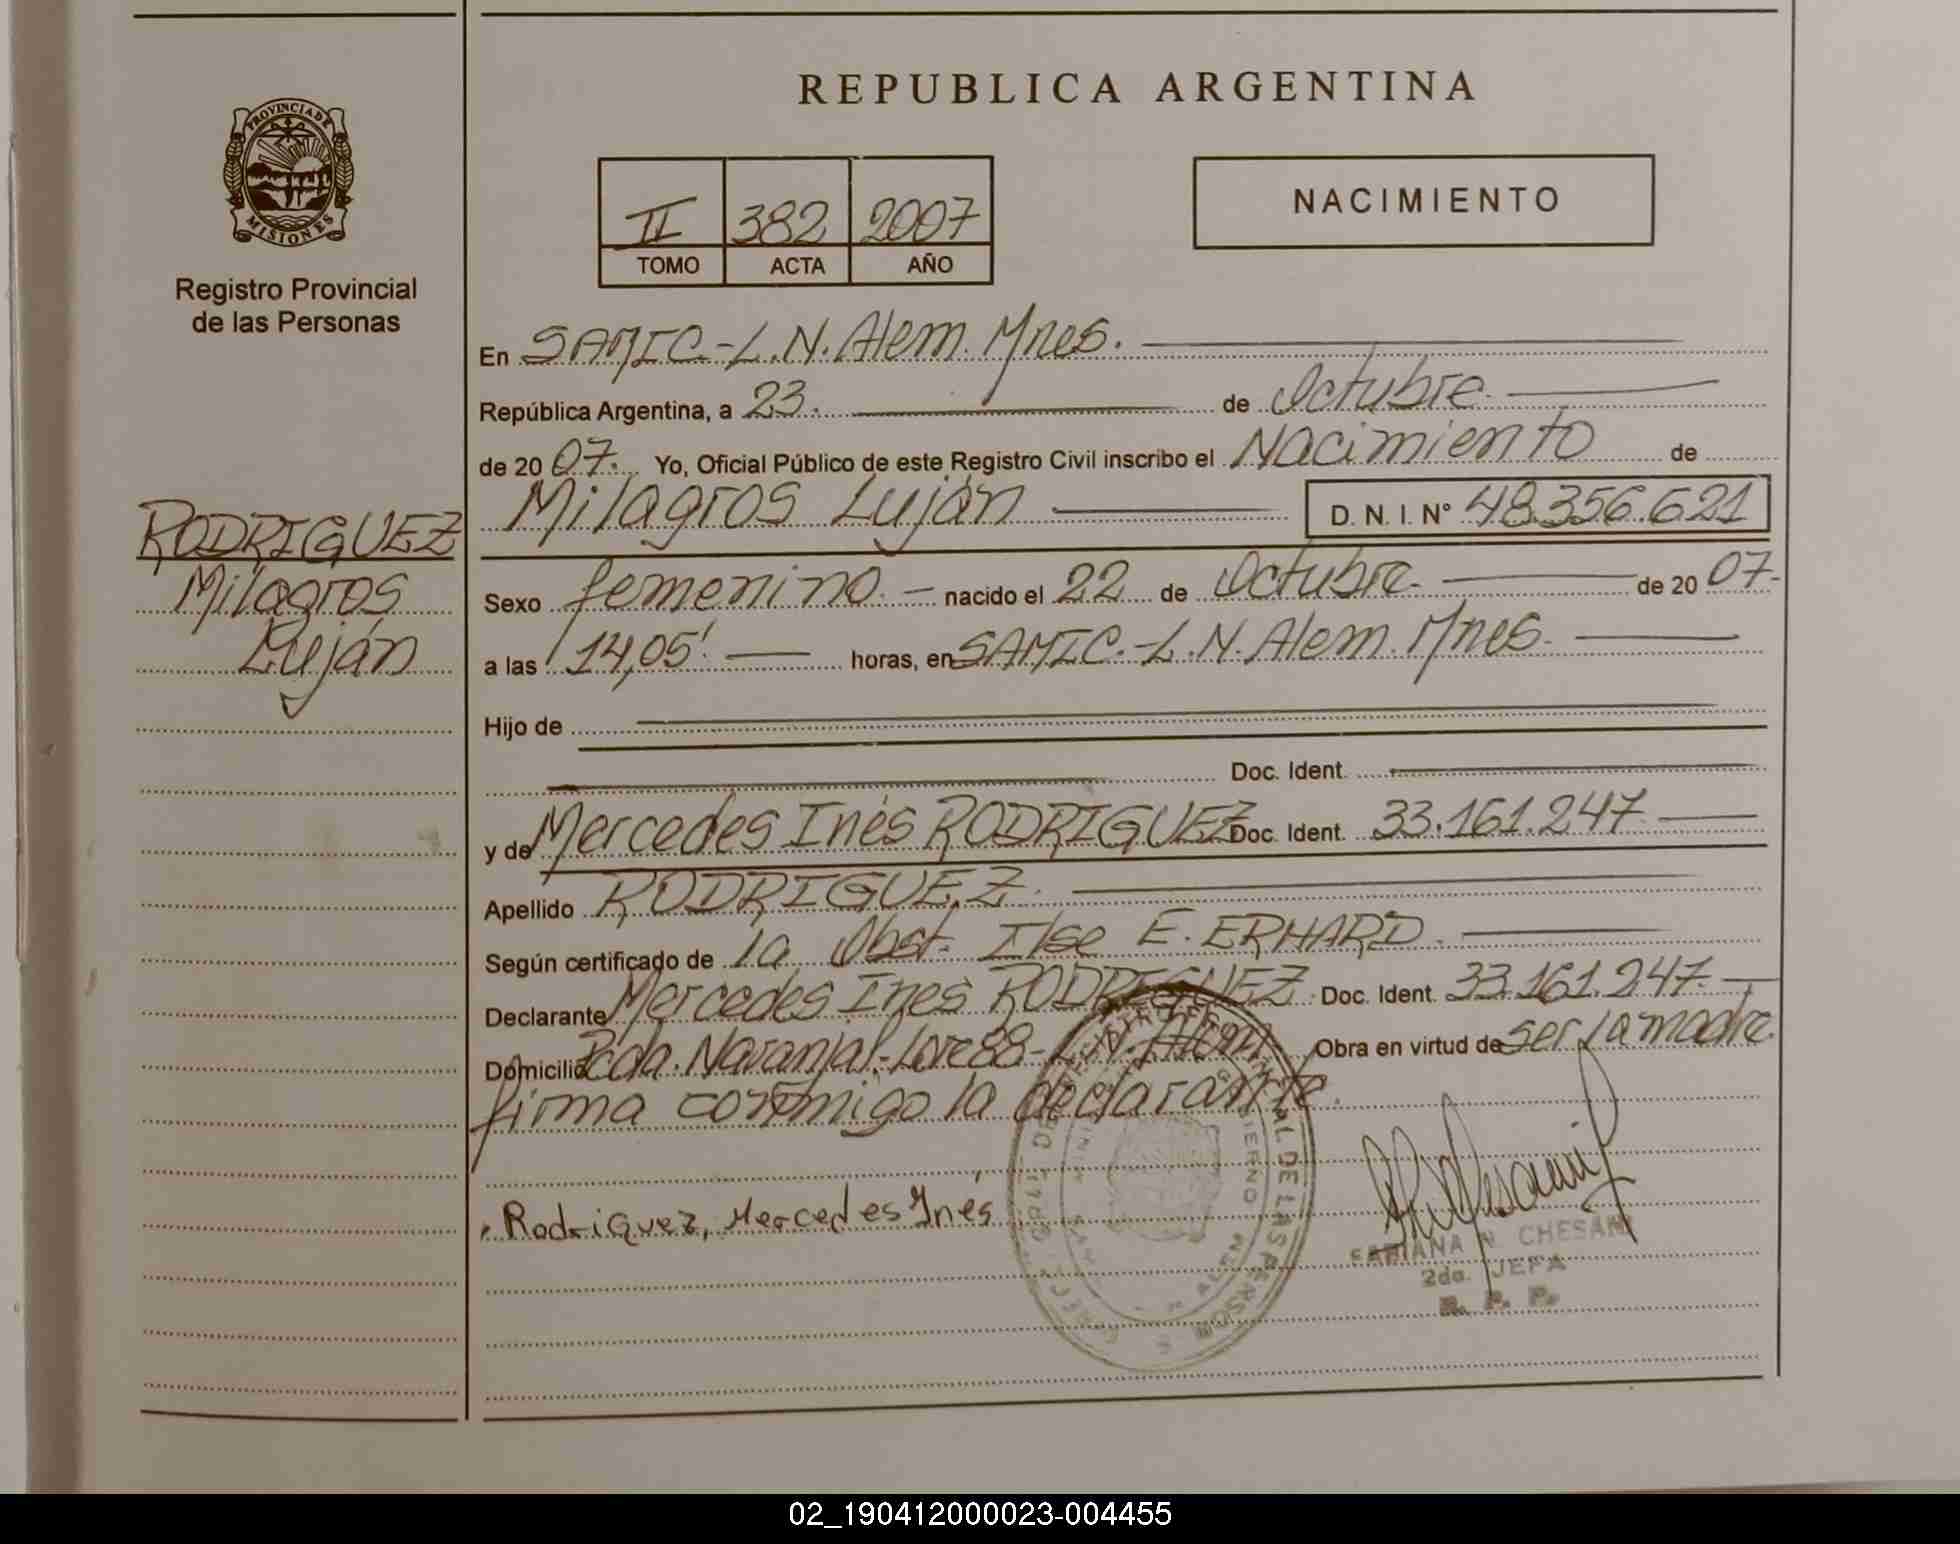 REPUBLICA ARGENTINA
PROVINCIA DE
MISIONES
Registro Provincial
de las Personas
II 382 2007
TOMO ACTA AÑO
NACIMIENTO
En SAMIC.-L.N.Alem.Mnes.
República Argentina, a 23. de Octubre.
de 20 07. Yo, Oficial Público de este Registro Civil inscribo el Nacimiento de
Milagros Luján D. N. I. N° 48.356.621
RODRIGUEZ
Milagros
Luján
Sexo femenino.- nacido el 22 de Octubre. de 20 07.
a las 14,05'. horas, en SAMIC.-L.N.Alem.Mnes.
Hijo de
Doc. Ident.
y de Mercedes Inés RODRIGUEZ Doc. Ident. 33.161.247.
Apellido RODRIGUEZ.
Según certificado de la Obst. Ilse E. ERHARD.
Declarante Mercedes Inés RODRIGUEZ. Doc. Ident. 33.161.247.-
Domicilio Pcda. Naranjal.-Lote 88-L.N.Alem Obra en virtud de ser la madre.
firma conmigo la declarante.
Rodriguez, Mercedes Inés
FABIANA N. CHESANI
2da. JEFA
R. P. P.
02_190412000023-004455